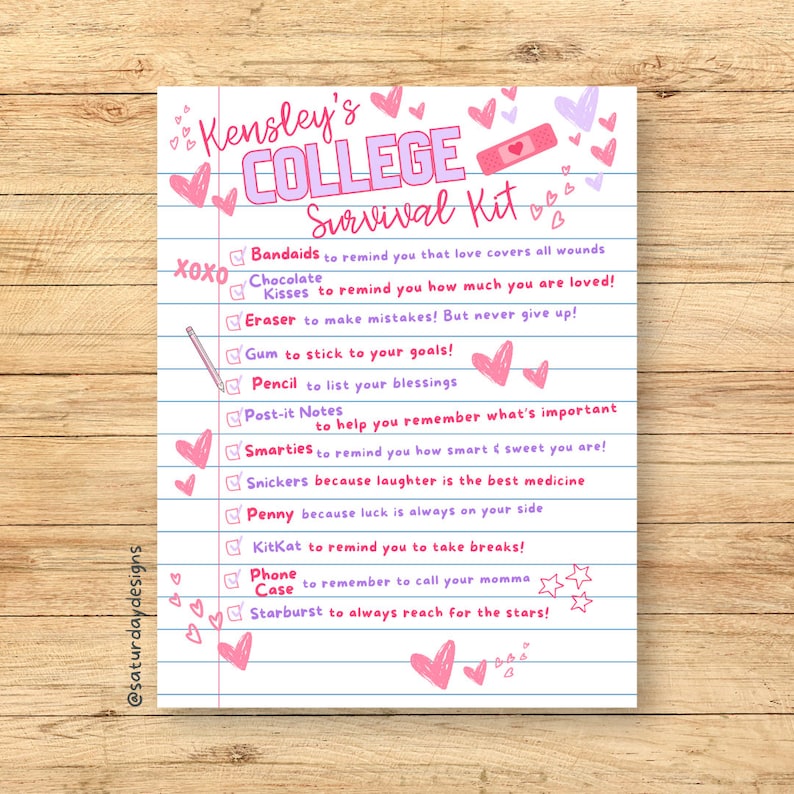 Kensley's
COLLEGE
Survival Kit
XOXO
Bandaids to remind you that love covers all wounds
Chocolate
Kisses to remind you how much you are loved!
Eraser to make mistakes! But never give up!
Gum to stick to your goals!
Pencil to list your blessings
Post-it Notes
to help you remember what's important
Smarties to remind you how smart & sweet you are!
Snickers because laughter is the best medicine
Penny because luck is always on your side
KitKat to remind you to take breaks!
Phone
Case to remember to call your momma
Starburst to always reach for the stars!
@saturdaydesigns